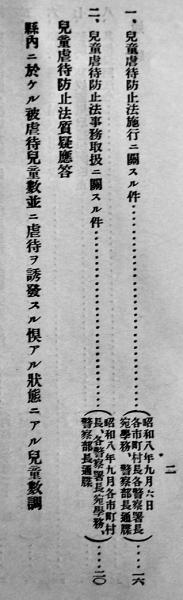 一、兒童虐待防止法施行ニ關スル件
(昭和八年九月六日
各市町村長各警察署長
宛學務、警察部長通牒)
一六
二、兒童虐待防止法事務取扱ニ關スル件
(昭和八年九月各市町村
長、各警察署長宛學務、
警察部長通牒)
二〇
兒童虐待防止法質疑應答
縣內ニ於ケル被虐待兒童數並ニ虐待ヲ誘發スル惧アル狀態ニアル兒童數調
二